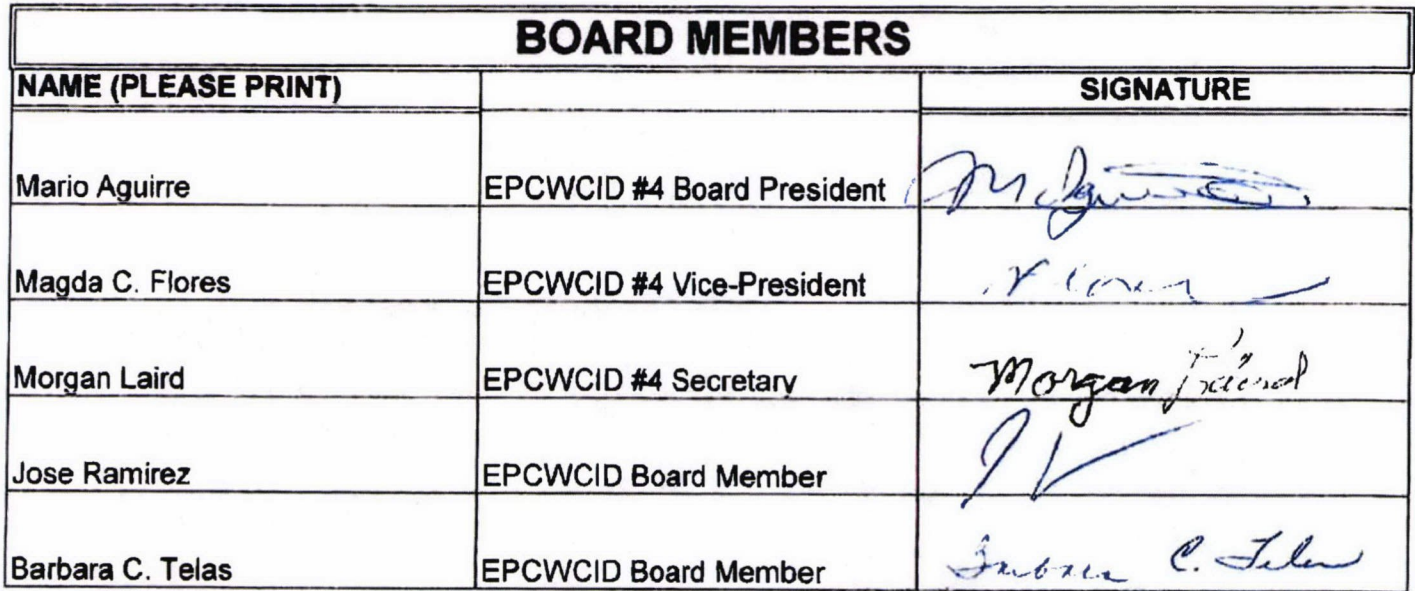 BOARD MEMBERS
NAME (PLEASE PRINT) SIGNATURE
Mario Aguirre EPCWCID #4 Board President
Magda C. Flores EPCWCID #4 Vice-President Flores
Morgan Laird EPCWCID #4 Secretary Morgan Laird
Jose Ramirez EPCWCID Board Member
Barbara C. Telas EPCWCID Board Member Barbara C. Telas